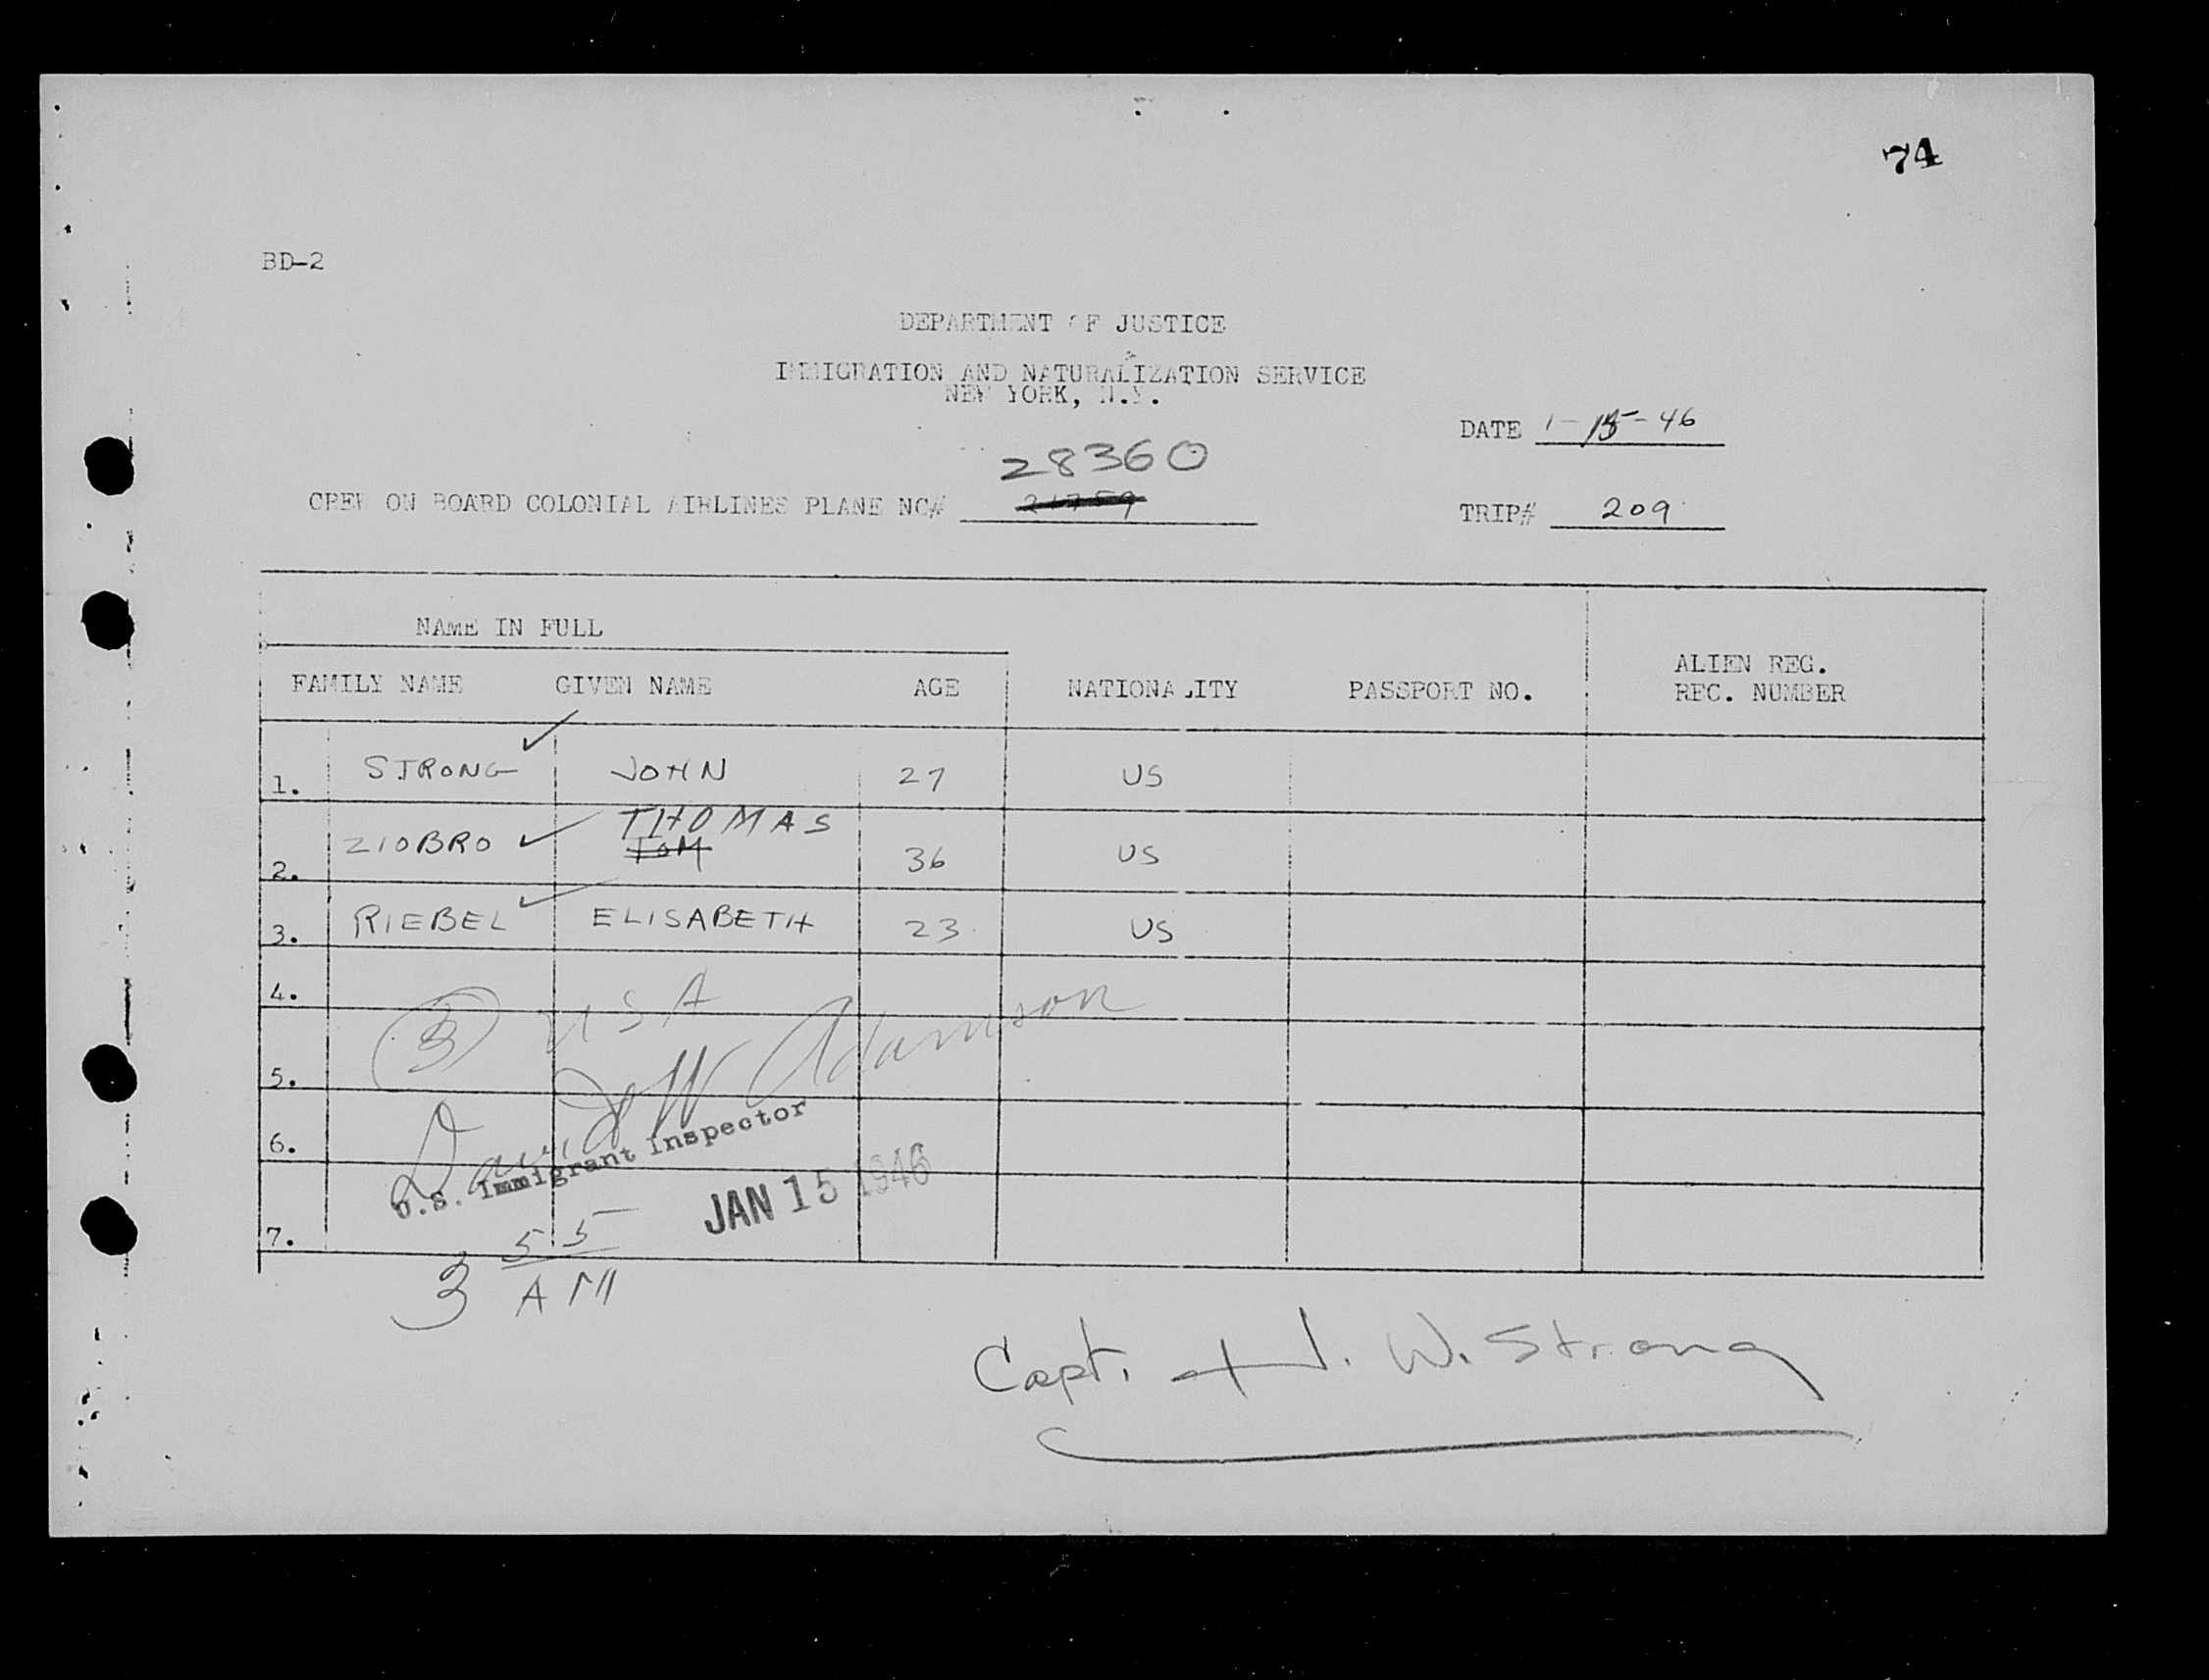 74
BD-2
DEPARTMENT OF JUSTICE
IMMIGRATION AND NATURALIZATION SERVICE
NEW YORK, N.Y.
DATE 1-15-46
28360
CREW ON BOARD COLONIAL AIRLINES PLANE NC# TRIP# 209
NAME IN FULL
FAMILY NAME GIVEN NAME AGE NATIONALITY PASSPORT NO. ALIEN REG. REC. NUMBER
1. STRONG JOHN 27 US
THOMAS
2. ZIOBRO TOM 36 US
3. RIEBEL ELISABETH 23 US
4.
3 USA
5.
David W Adamson
6.
U.S. Immigrant Inspector
JAN 15 1946
7.
3 55 AM
Capt. J. W. Strong